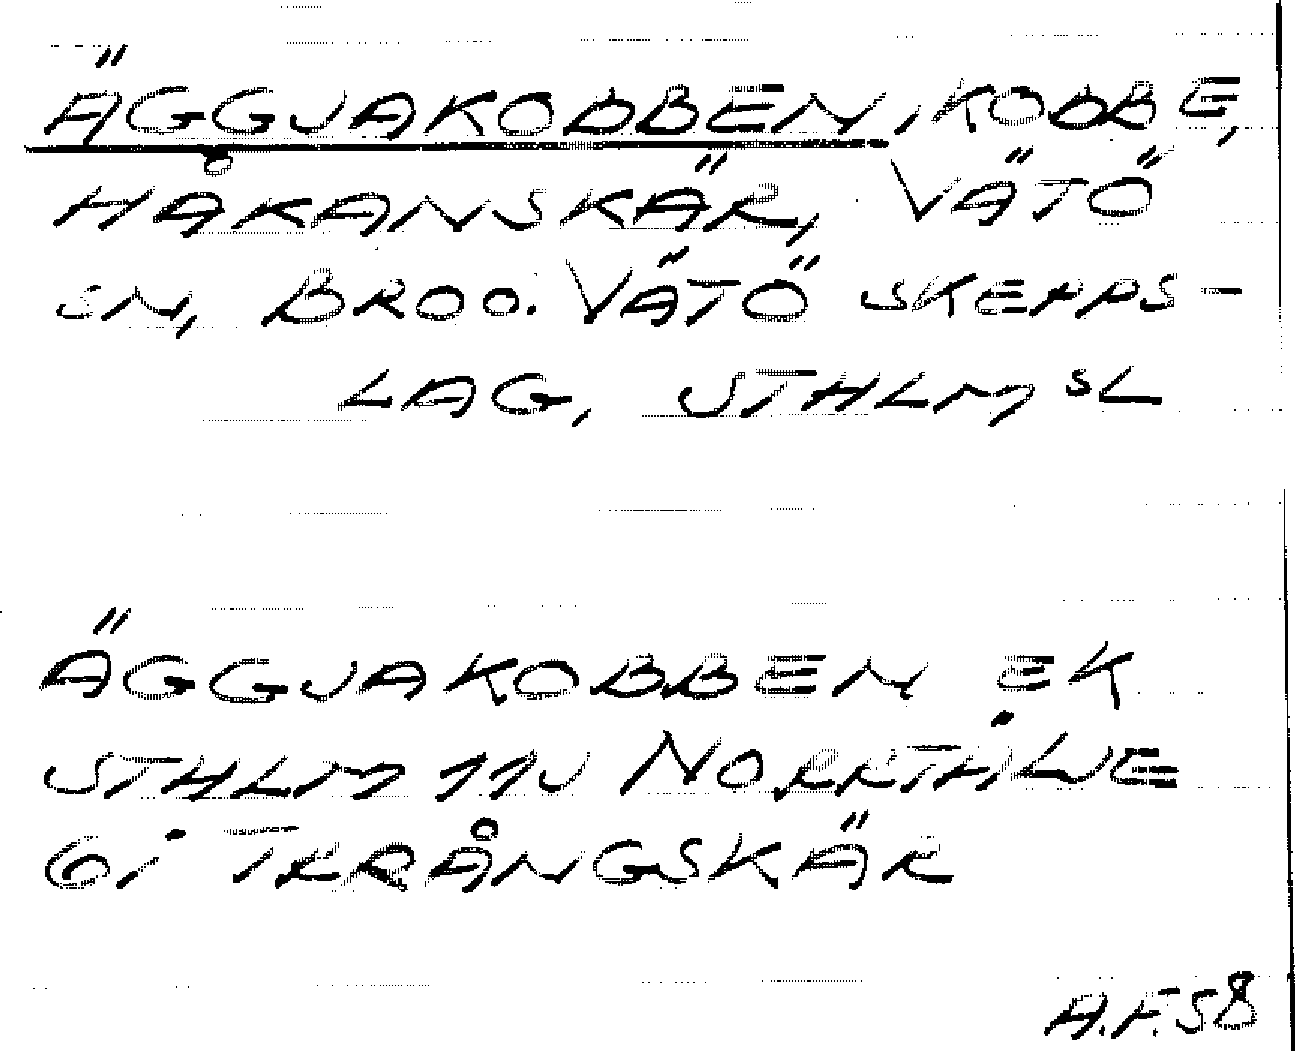 ÄGGJAKOBBEN, KOBBE,
HÅKANSKÄR, VÄTÖ
SN, BROO. VÄTÖ SKEPPS-
LAG, STHLMS L
ÄGGJAKOBBEN EK
STHLM 11J NORRTÄLJE
6i TRRÅNGSKÄR
A.F. 58